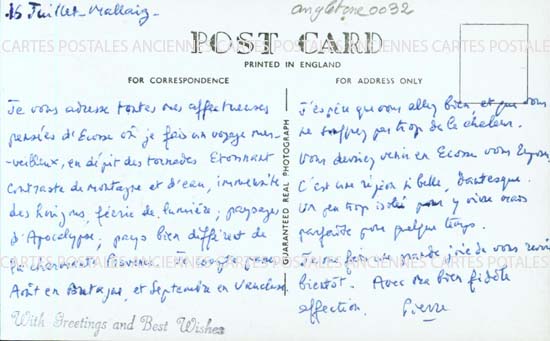 15 Juillet - Mallaig -
angletone0032
CARTES POSTALES ANCIENNES CARTES POSTALES ANCIENNES CARTES POSTALES
POST CARD
PRINTED IN ENGLAND
FOR CORRESPONDENCE
FOR ADDRESS ONLY
GUARANTEED REAL PHOTOGRAPH
Je vous adresse toutes mes affectueuses
pensées d'Ecosse où je fais un voyage mer-
-veilleux, en dépit des tornades Etonnant
contraste de montagne et d'eau, immensité
des horizons, féerie de lumière; paysages
d'Apocalypse; pays bien différent de
la charmante Provence. Je compte passer
Août en Bretagne, et Septembre en Vaucluse.
With Greetings and Best Wishes
J'espère que vous allez bien, et que vous
ne souffrez pas trop de la chaleur.
Vous devriez venir en Ecosse
C'est une région si belle, dantesque.
Un peu trop isolé pour y vivre mais
parfaite pour quelque temps.
Je me fais une grande joie de vous revoir
bientôt. Avec ma bien fidèle
affection. Pierre